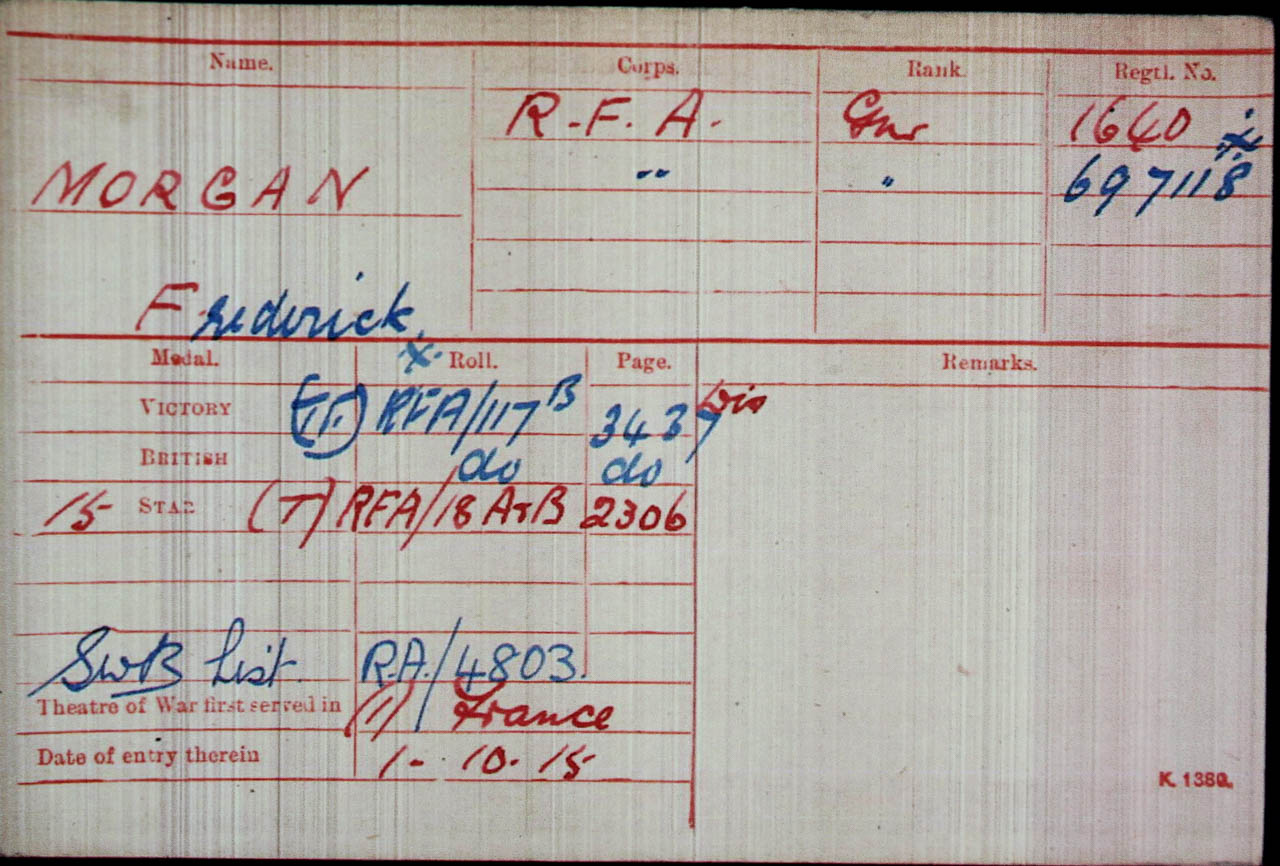 Name. Corps. Rank. Regtl. No.
R.F.A. Gnr 1640 x
MORGAN " " 697118
Frederick x
Medal. Roll. Page. Remarks.
VICTORY (TF) RFA/117 B 3437 Dis
BRITISH do do
15 STAR (T) RFA/18 A+B 2306
SWB List. R.A./4803.
Theatre of War first served in (1) France
Date of entry therein 1-10.15
K. 1380.